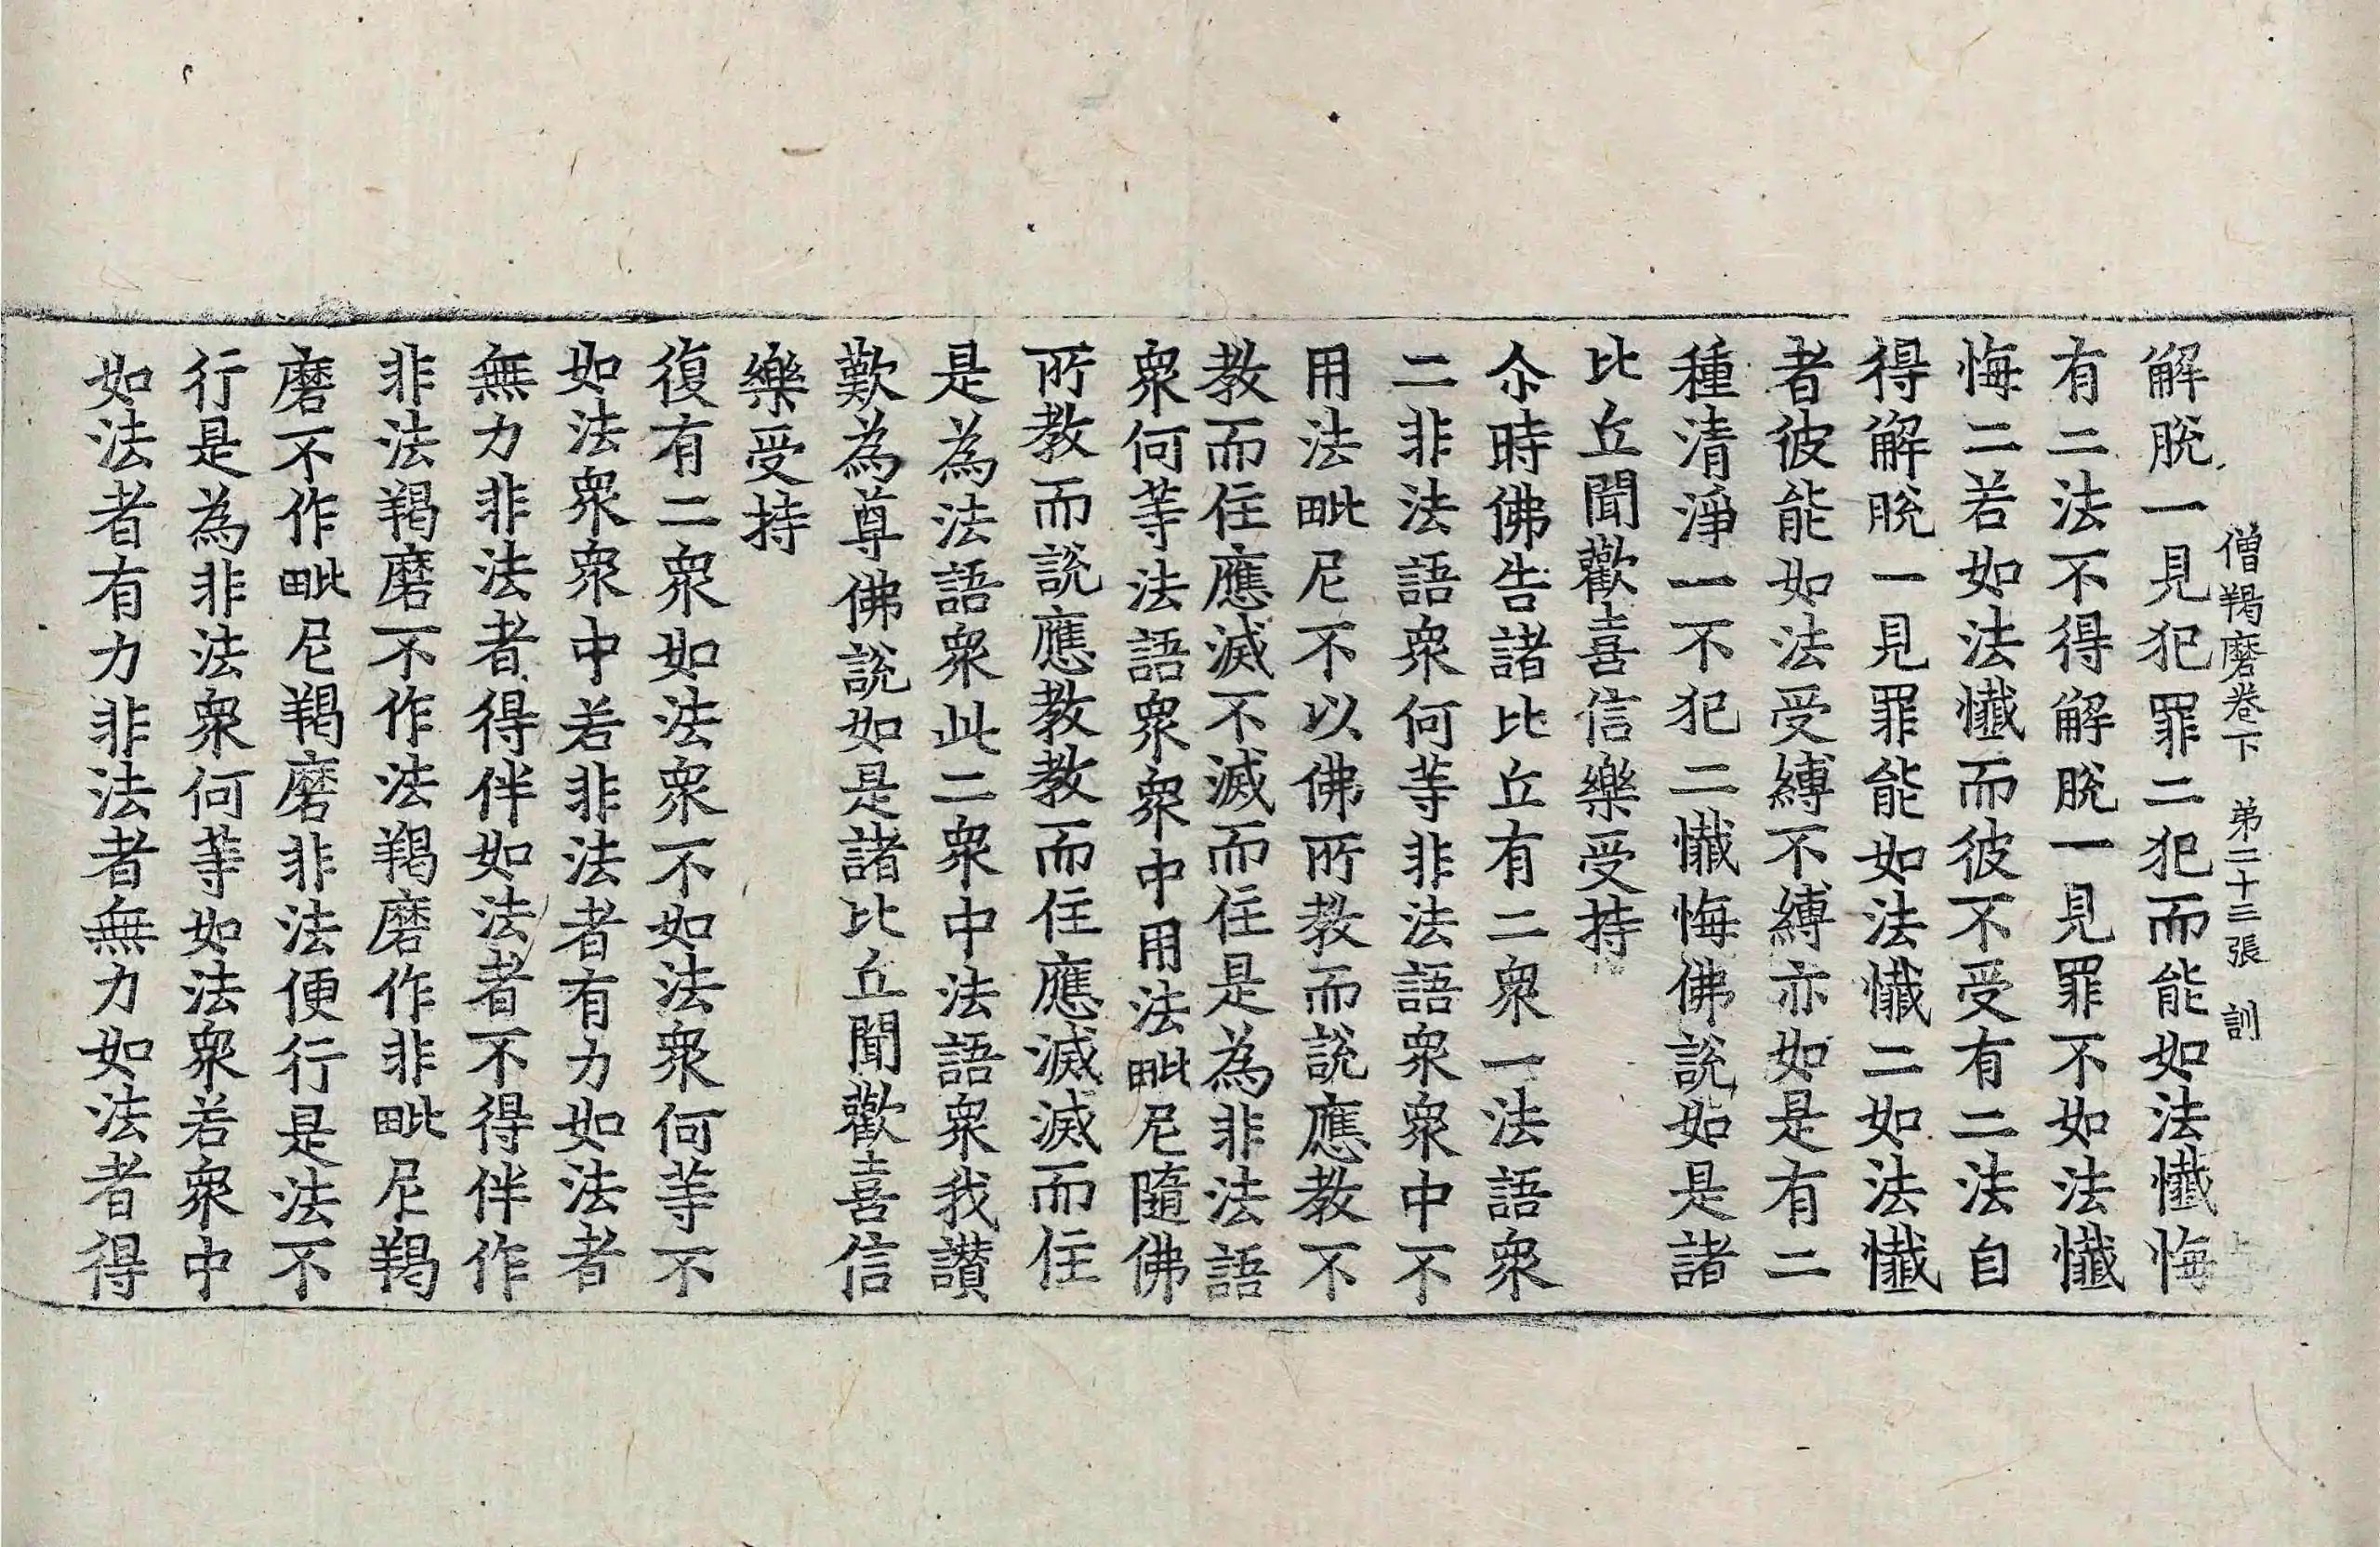 僧羯磨卷下　弟二十三張　訓
解脫一見犯罪二犯而能如法懺悔
有二法不得解脫一見罪不如法懺
悔二若如法懺而彼不受有二法自
得解脫一見罪能如法懺二如法懺
者彼能如法受縛不縛亦如是有二
種清淨一不犯二懺悔佛說如是諸
比丘聞歡喜信樂受持
尒時佛告諸比丘有二衆一法語衆
二非法語衆何等非法語衆衆中不
用法毗尼不以佛所教而說應教不
教而住應滅不滅而住是為非法語
衆何等法語衆衆中用法毗尼隨佛
所教而說應教教而住應滅滅而住
是為法語衆此二衆中法語衆我讃
歎為尊佛說如是諸比丘聞歡喜信
樂受持
復有二衆如法衆不如法衆何等不
如法衆衆中若非法者有力如法者
無力非法者得伴如法者不得伴作
非法羯磨不作法羯磨作非毗尼羯
磨不作毗尼羯磨非法便行是法不
行是為非法衆何等如法衆若衆中
如法者有力非法者無力如法者得